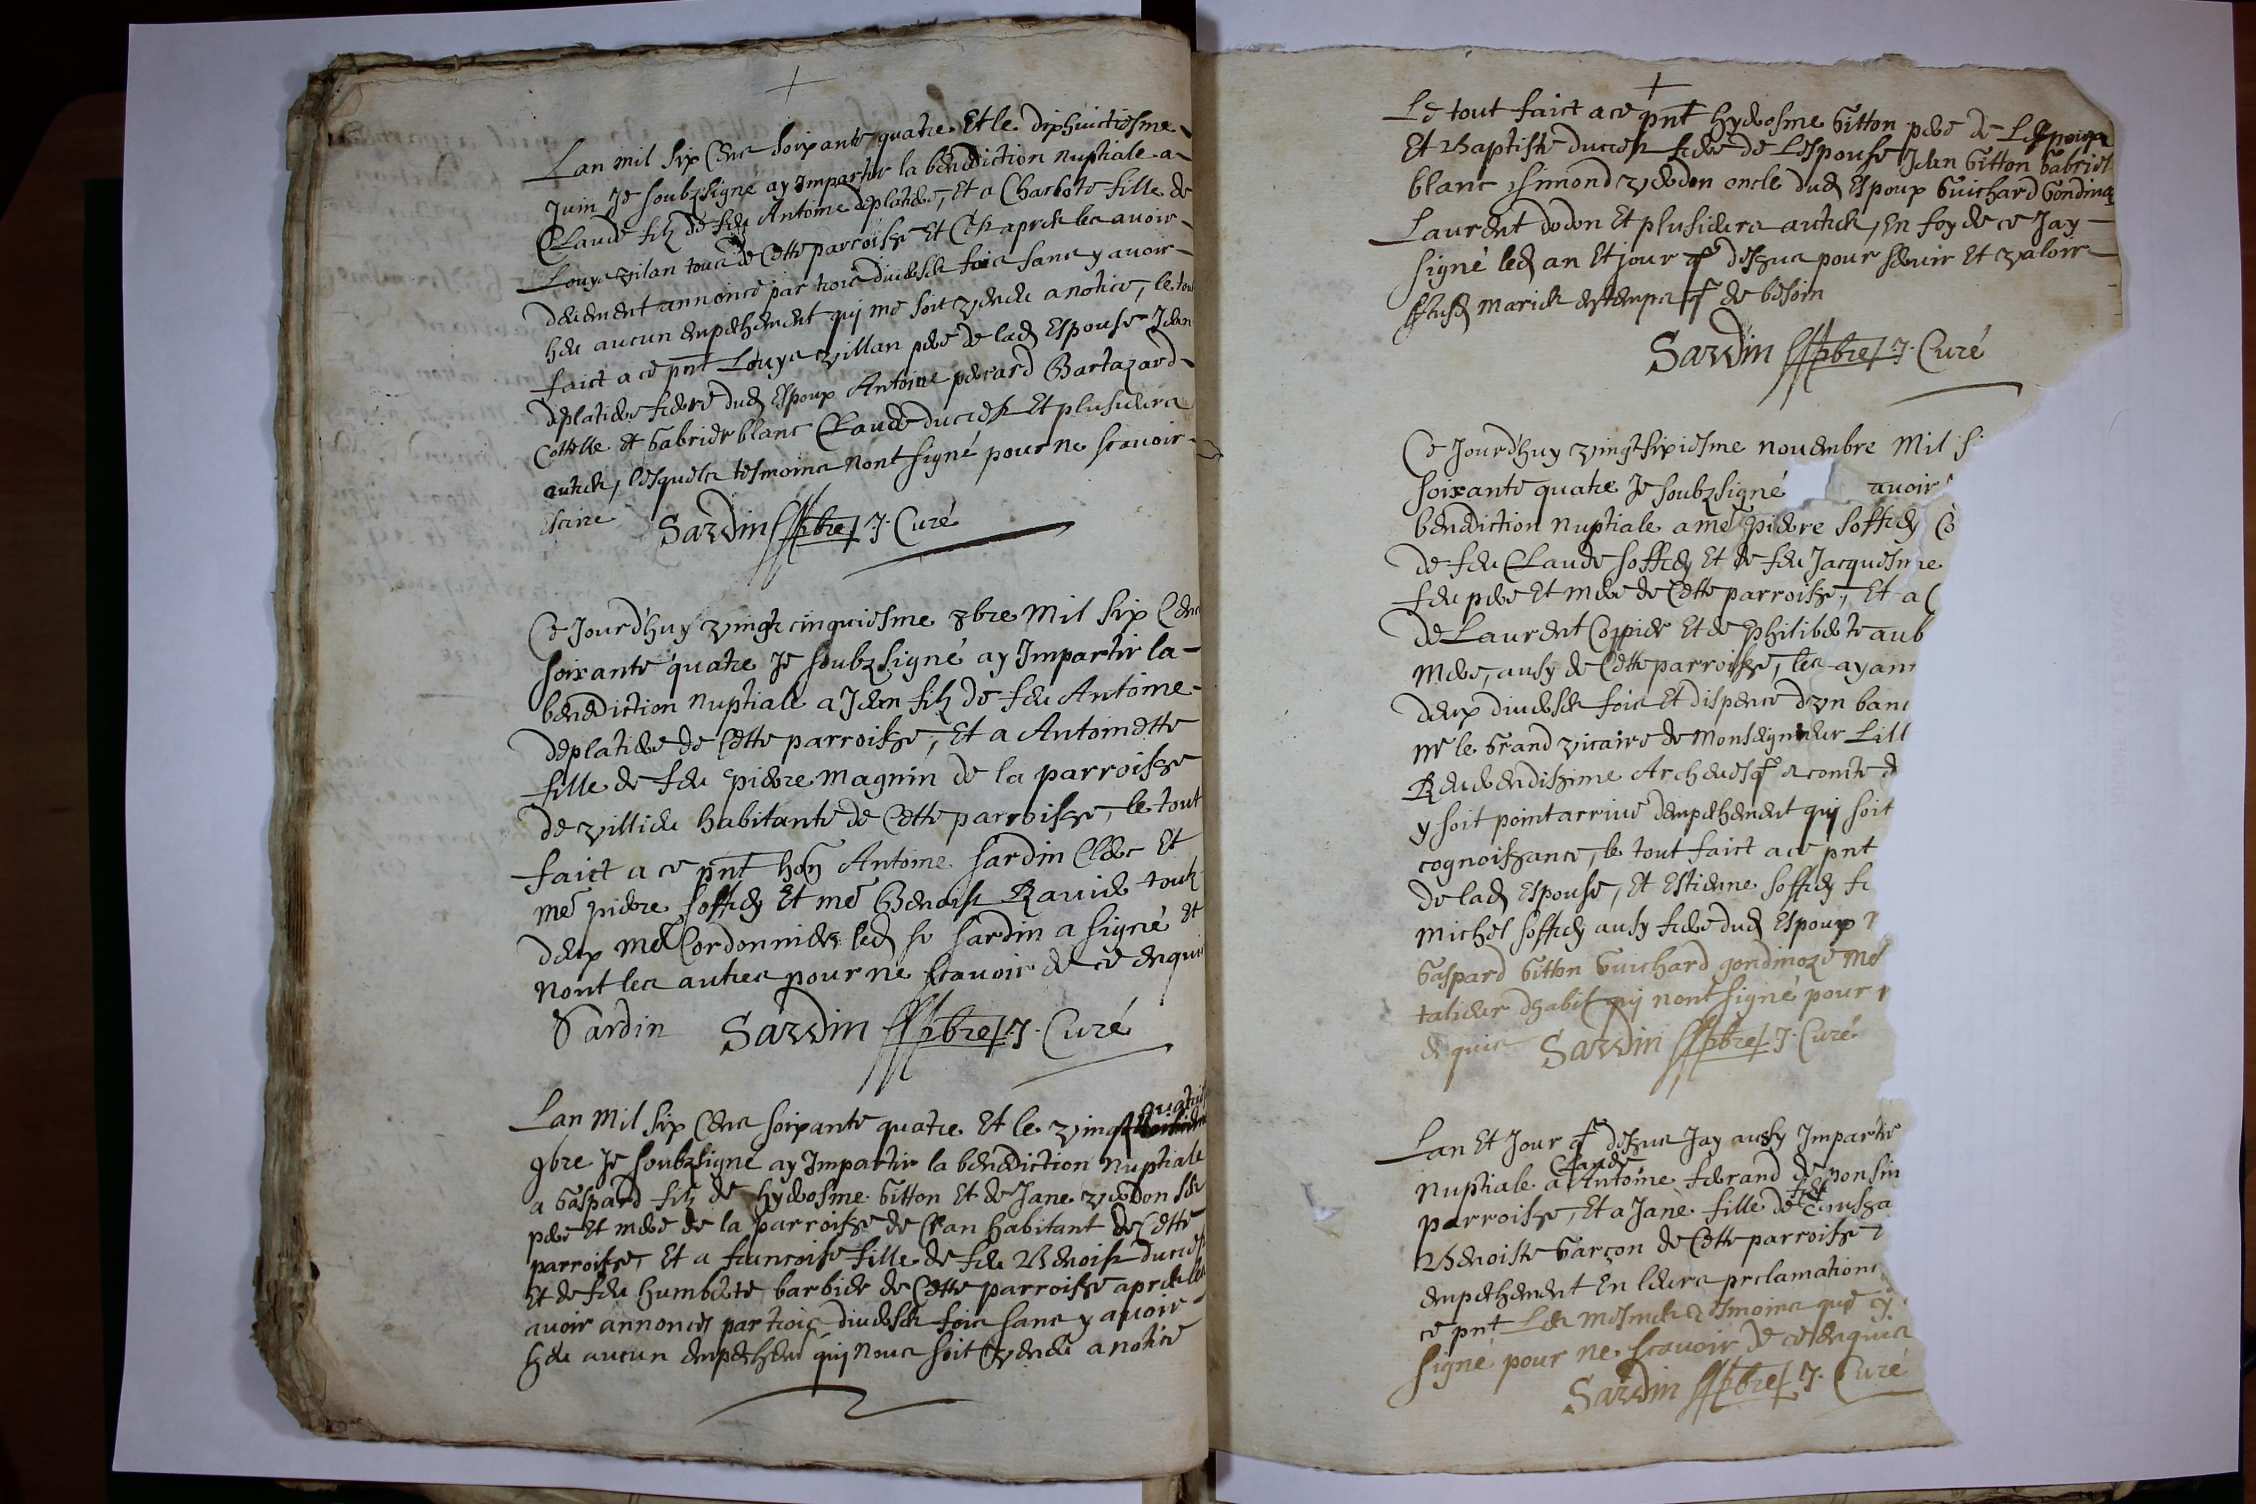 Lan mil six Cens soixante quatre Et le dixhuictiesme
Juin Je soubzsigné ay Impartir la bénédiction nuptiale a
Claude filz de feu Antoine deplatiere, Et a Charlote fille de
Louys vilan tous de Cette parroisse Et Ce aprez les avoir
deuement annoncé par trois diverses fois sans y avoir
heu aucun empechement qui me soit venu a notice, le tout
faict a ce pnt Louys villan pere de lad Espouse Jean
deplatiere frere dud Espoux Antoine perrard Bartazard
Cottelle et Gabriel blanc Claude ducrest Et plusieurs
autres, lesquels tesmoins nont signé pour ne scavoir
escrire Sardin pbre J. Curé
Ce Jourdhuy vingt cinquiesme 8bre Mil six Cens
soixante quatre Je soubzsigné ay Impartir la
bénédiction nuptiale a Jean filz de feu Antoine
deplatiere de Cette parroisse, Et a Antoinette
fille de feu pierre magnin de la parroisse
de villieu habitante de Cette parroisse, le tout
faict a ce pnt hon Antoine sardin Clerc Et
me pierre soffrey Et me Benoist Ravier touz
deux me Cordonniers led sr sardin a signé et
nont les autres pour ne scavoir de ce enquis
Sardin Sardin pbre J. Curé
Lan Mil six Cens soixante quatre Et le vingt quatries
9bre Je soubzsigné ay Impartir la bénédiction nuptiale
a Gaspard filz de hyerosme Gitton Et de Jane verdon ses
pere Et mere de la parroisse de Cran habitant de Cette
parroisse, Et a francoise fille de feu Benoist ducrest
Et de feu humberte barbier de Cette parroisse aprez les
avoir annoncés par trois diverses fois sans y avoir
heu aucun empechem qui nous soit venu a notice
Le tout faict a ce pnt hyerosme Gitton pere de Lespoux
Et Baptiste ducrest frere de Lespouse Jean Gitton Gabriel
blanc simond verdon oncle dud Espoux Guichard Gondinoz
Laurent dodon Et plusieurs autres, En foy de ce Jay
signé led an Et Jour q dessus pour servir Et valoir
ausd mariez en temps q de besoin
Sardin pbre J. Curé
Ce Jourdhuy vingtsixiesme novembre Mil s
soixante quatre Je soubzsigné avoir
bénédiction nuptiale a me pierre soffrey Co
de feu Claude soffrey Et de feu Jacquesme
feu pere Et mere de Cette parroisse, Et a C
de Laurent Coppier Et de philiberte aub
mere, ausy de Cette parroisse, les ayant
deux diverses fois Et dispence dvn banc
mr le Grand vicaire de Monseigneur Lill
Reverendissime Archevesq & comte d
y soit point arrivé dempechement qui soit
cognoissance, le tout faict a ce pnt
de lad Espouse, Et Estienne soffrey fr
Michel soffrey ausy frere dud Espoux
Gaspard Gitton Guichard gondinoze me
talieur dhabit qui nont signé pour
Enquis Sardin pbre J. Curé
Lan Et Jour q dessus Jay ausy Impartir
Nuptiale a Antoine Claude ferrand de ponsin
parroisse, Et a Jane fille de feu
Benoiste Garcon de Cette parroisse
empechement En leurs proclamations
ce pnt Les mesmes tesmoins que cy
signé pour ne scavoir de ce enquis
Sardin pbre J. Curé